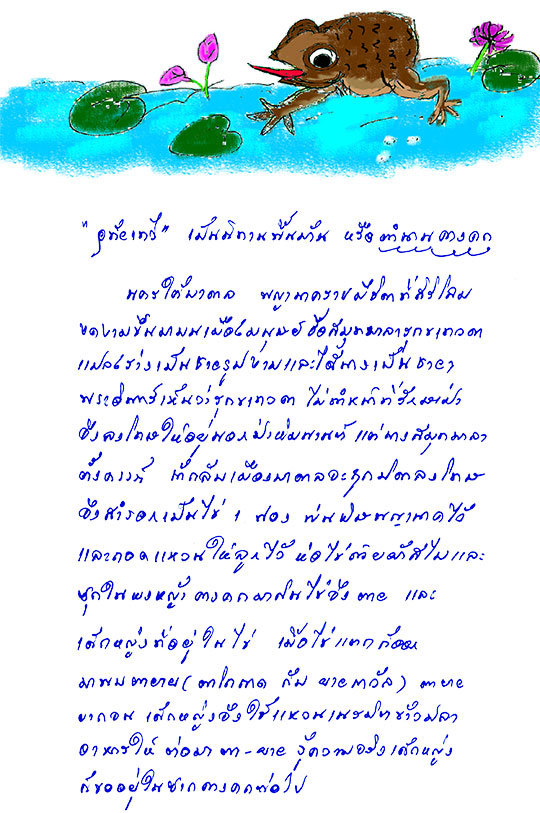 "อุทัยเทวี" เป็นนิทานพื้นบ้าน หรือตำนานคางคก
นครใต้บาดาล พญานาคราชมีธิดาที่สิริโฉม
งดงามขึ้นมาบนเมืองมนุษย์ ชื่อสมุทมาลา รุกขเทวดา
แปลงร่างเป็นชายรูปงามและได้นางเป็นชายา
พระอินทร์เห็นว่ารุกขเทวดา ไม่ทำหน้าที่รักษาป่า
จึงลงโทษให้อยู่นอกป่าหิมพานต์ แต่นางสมุทมาลา
ตั้งครรภ์ ถ้ากลับเมืองบาดาลจะถูกบิดาลงโทษ
จึงสำรอกเป็นไข่ 1 ฟอง พ่นพิษพญานาคไว้
และถอดแหวนให้ลูกไว้ ห่อไข่ด้วยผ้าสไบและ
ซุกในพงหญ้า คางคกมากินไข่จึงตาย และ
เด็กหญิงที่อยู่ในไข่ เมื่อไข่แตกก็ออก
มาพบตายาย( ตาโถถาด กับ ยาย ) ตายาย
ยากจน เด็กหญิงจึงใช้แหวนเนรมิตข้าวปลา
อาหารให้ ต่อมา ตา-ยาย รู้ความจริงเด็กหญิง
ก็ขออยู่ในซากคางคกต่อไป